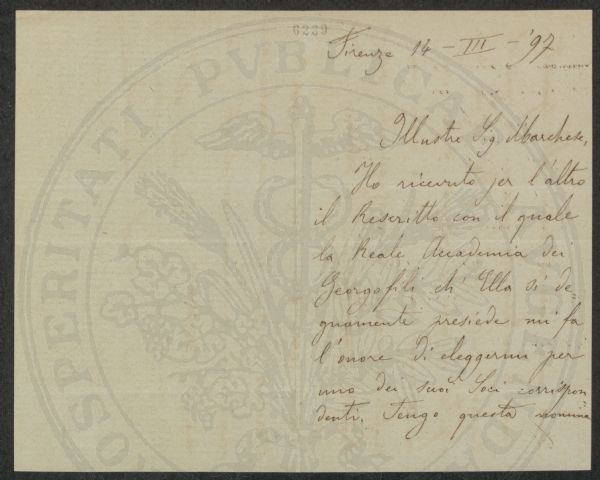 6239
Firenze 14 - III - '97
Illustre Sig. Marchese,
Ho ricevuto jer l'altro
il Rescritto con il quale
la Reale Accademia dei
Georgofili ch' Ella sì de
gnamente presiede mi fa
l'onore di eleggermi per
uno dei suoi Soci corrispon
denti. Tengo questa nomina
PROSPERITATI PUBLICAE